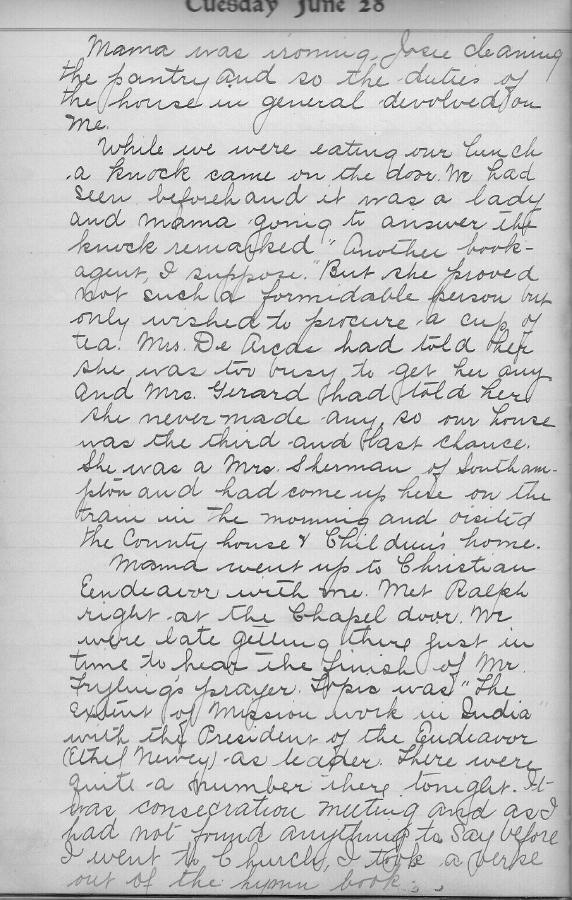 Tuesday June 28
Mama was ironing, Josie cleaning
the pantry and so the duties of
the house in general devolved on
me.
While we were eating our lunch
a knock came on the door. We had
seen beforehand it was a lady
and mama going to answer the
knock remarked "Another book-
agent, I suppose." But she proved
not such a formidable person but
only wished to procure a cup of
tea. Mrs. De Arcas had told her
she was too busy to get her any
and Mrs. Gerard had told her
she never made any, so our house
was the third and last chance.
She was a Mrs. Sherman of Southam-
pton and had come up here on the
train in the morning and visited
the County house & Children's home.
Mama went up to Christian
Eendeavor with me. Met Ralph
right at the Chapel door. We
were late getting there just in
time to hear the finish of Mr.
Fryling's prayer. Topic was "The
Extent of Mission work in India"
with the President of the Endeavor
(Ethel Newey) as leader. There were
quite a number there tonight. It
was consecration meeting and as I
had not found anything to say before
I went to Church, I took a verse
out of the hymn book.